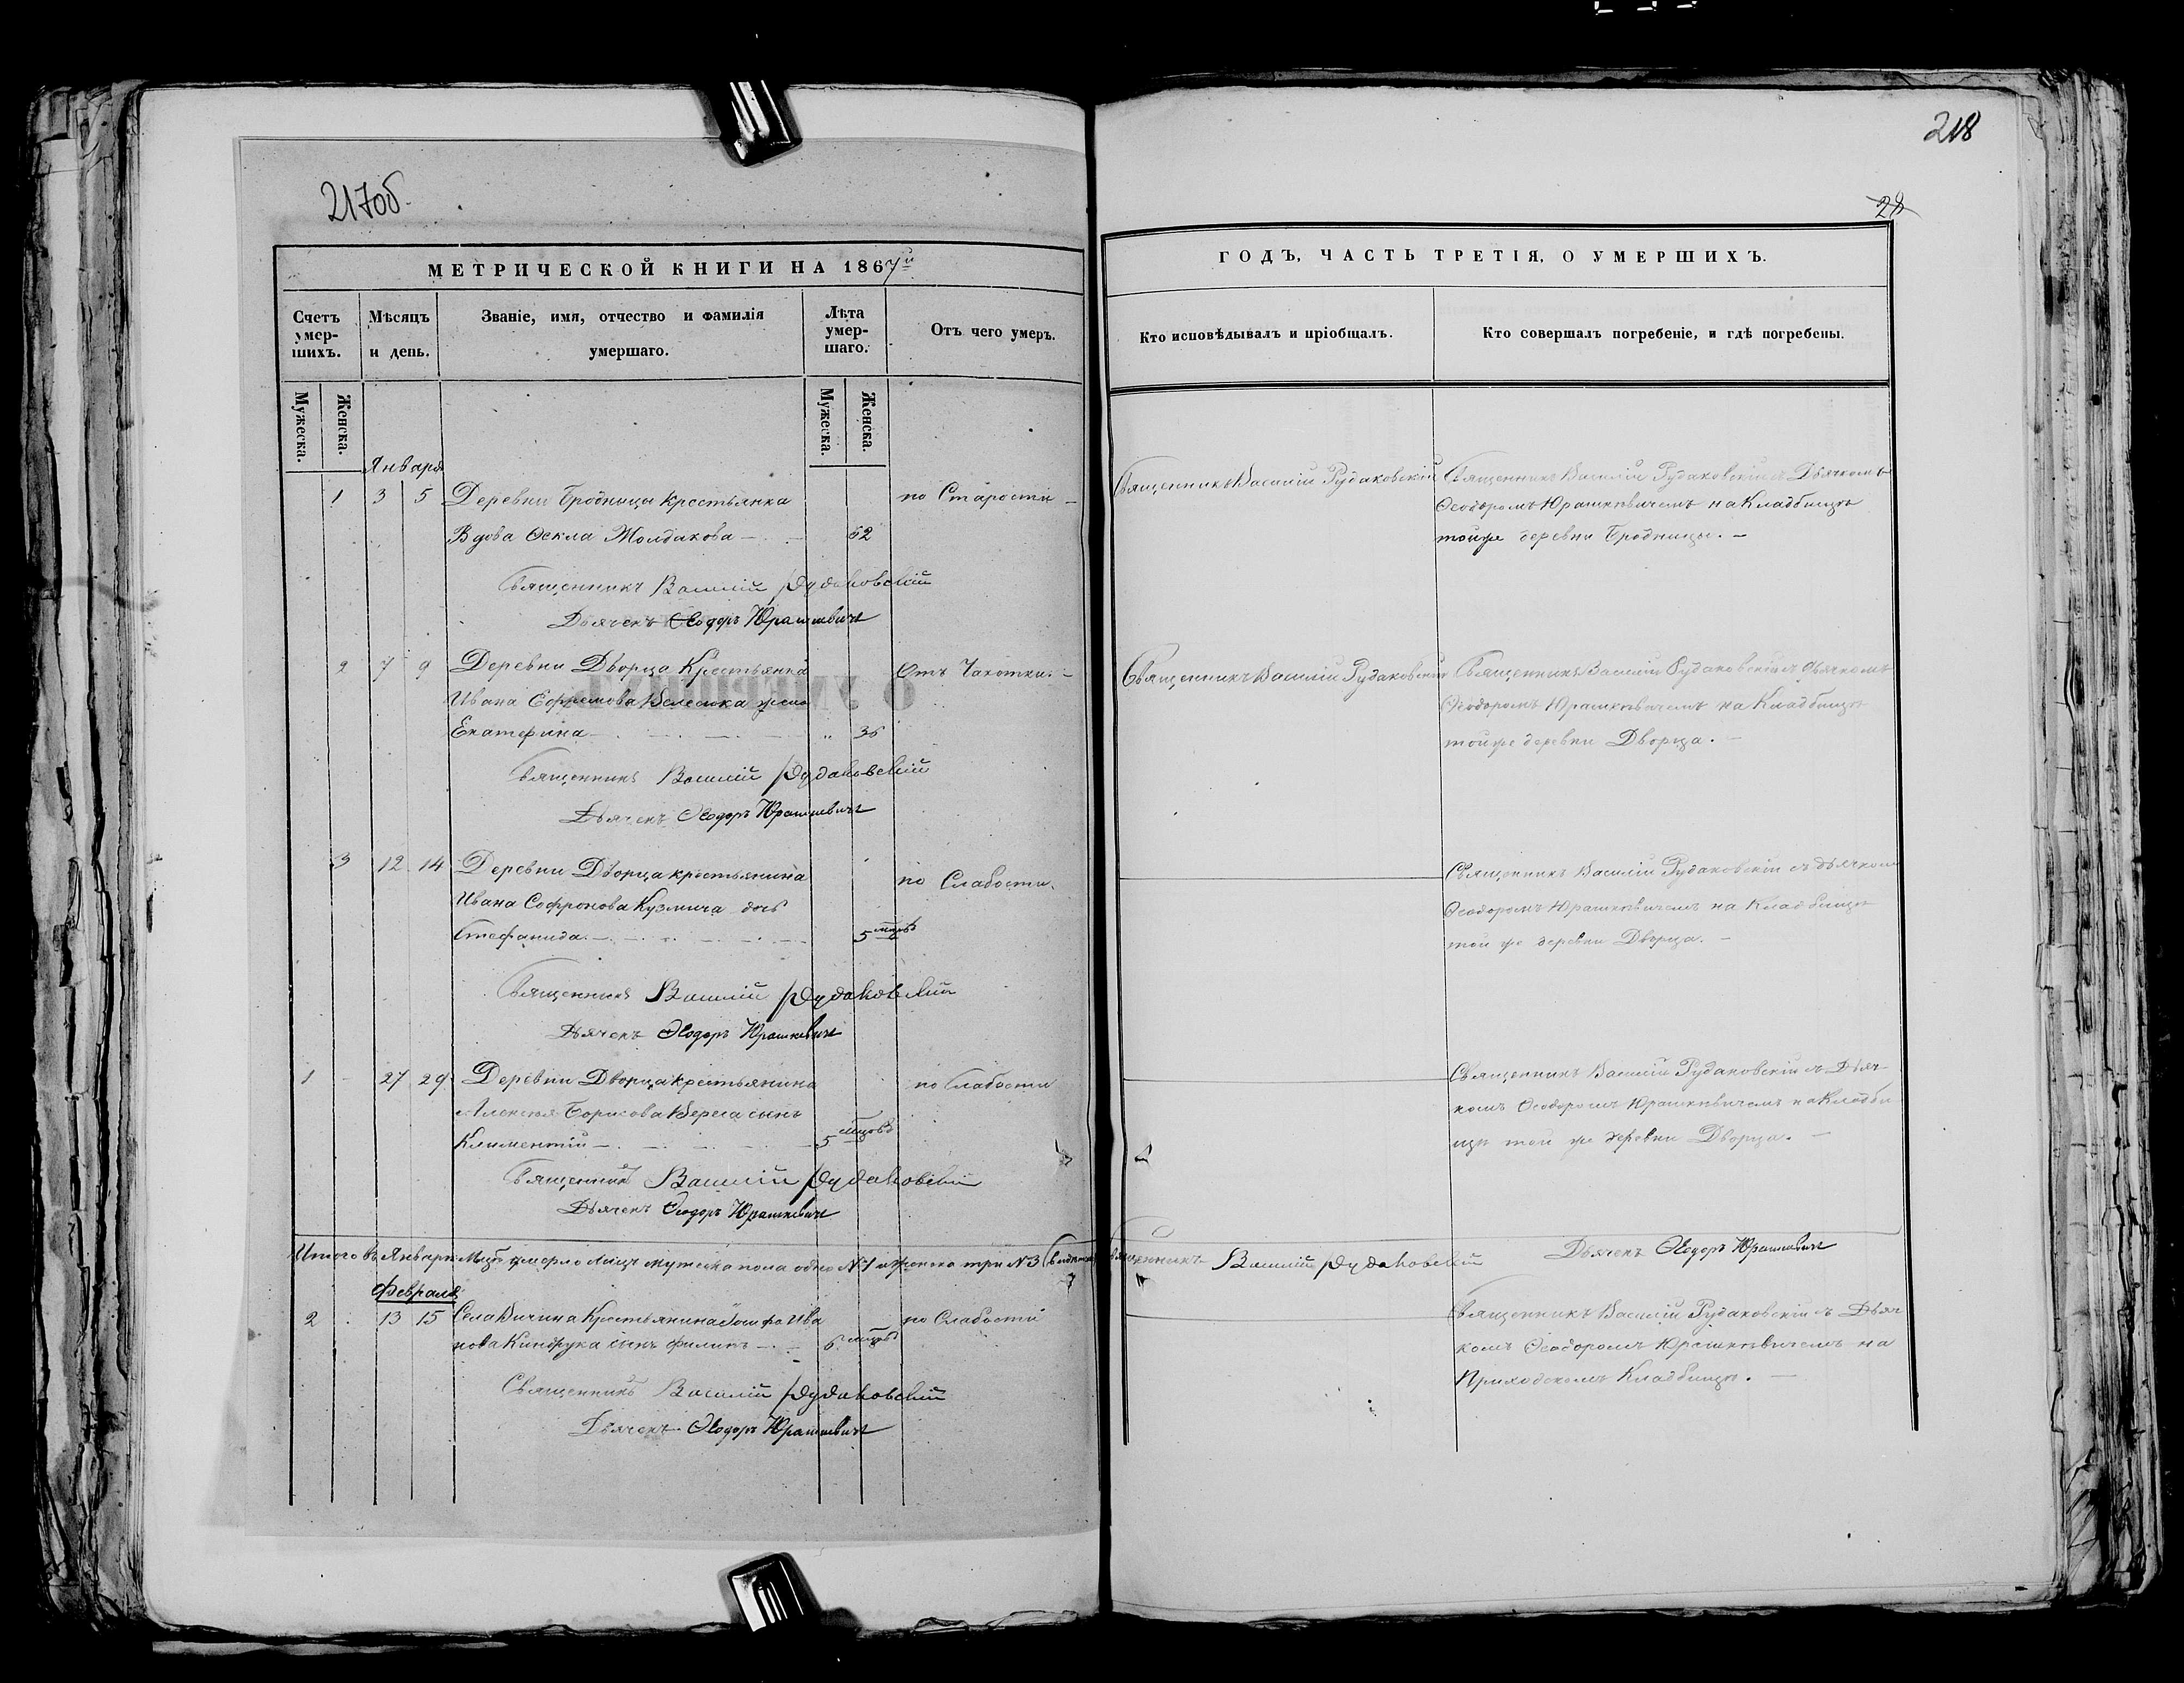 217об.
МЕТРИЧЕСКОЙ КНИГИ НА 1867й
Счетъ умер-шихъ. Мѣсяцъ и день. Званіе, имя, отчество и фамилія умершаго. Лѣта умер-шаго. Отъ чего умеръ.
Мужеска. Женска. Мужеска. Женска.
Января
1 3 5 Деревни Бродницы крестьянка по Старости
Вдова Ѳекла Жолдакова 62
Священникъ Василій Рудаковскій
Дьячекъ Ѳеодоръ Юрашкевичъ
2 7 9 Деревни Дворца Крестьянка Отъ Чахотки.
Ивана Ефремова Велесюка жена
Екатерина 36
Священникъ Василій Рудаковскій
Дьячекъ Ѳеодоръ Юрашкевичъ
3 12 14 Деревни Дворца крестьянина по Слабости.
Ивана Софронова Кузмича дочь
Стефанида 5 мцовъ
Священникъ Василій Рудаковскій
Дьячекъ Ѳеодоръ Юрашкевичъ
1 27 29 Деревни Дворца крестьянина по Слабости
Алексѣя Борисова Вереса сынъ
Климентій 5 мцовъ
Священникъ Василій Рудаковскій
Дьячекъ Ѳеодоръ Юрашкевичъ
Итого въ Январѣ Мцѣ умерло лицъ мужеска пола одно №1 и женска три №3
Февраля
2 13 15 Села Вичина Крестьянина Іосифа Ива
нова Киндрука сынъ Филипъ 6 мцовъ по Слабости
Священникъ Василій Рудаковскій
Дьячекъ Ѳеодоръ Юрашкевичъ
218
28
ГОДЪ, ЧАСТЬ ТРЕТІЯ, О УМЕРШИХЪ.
Кто исповѣдывалъ и пріобщалъ. Кто совершалъ погребеніе, и гдѣ погребены.
Священникъ Василій Рудаковскій Священникъ Василій Рудаковскій съ Дьячкомъ
Ѳеодоромъ Юрашкѣвичемъ на Кладбищѣ
тойже деревни Бродницы.
Священникъ Василій Рудаковскій Священникъ Василій Рудаковскій съ Дьячкомъ
Ѳеодоромъ Юрашкѣвичемъ на Кладбищѣ
тойже деревни Дворца.
Священникъ Василій Рудаковскій съ дьячком
Ѳеодоромъ Юрашкѣвичемъ на Кладбищѣ
той же деревни Дворца.
Священникъ Василій Рудаковскій съ Дьяч-
комъ Ѳеодоромъ Юрашкѣвичемъ на Кладби-
щѣ той же деревни Дворца.
Священникъ Василій Рудаковскій Дьячекъ Ѳеодоръ Юрашкевичъ
Священникъ Василій Рудаковскій съ Дьяч
комъ Ѳеодоромъ Юрашкѣвичемъ на
Приходскомъ Кладбищѣ.